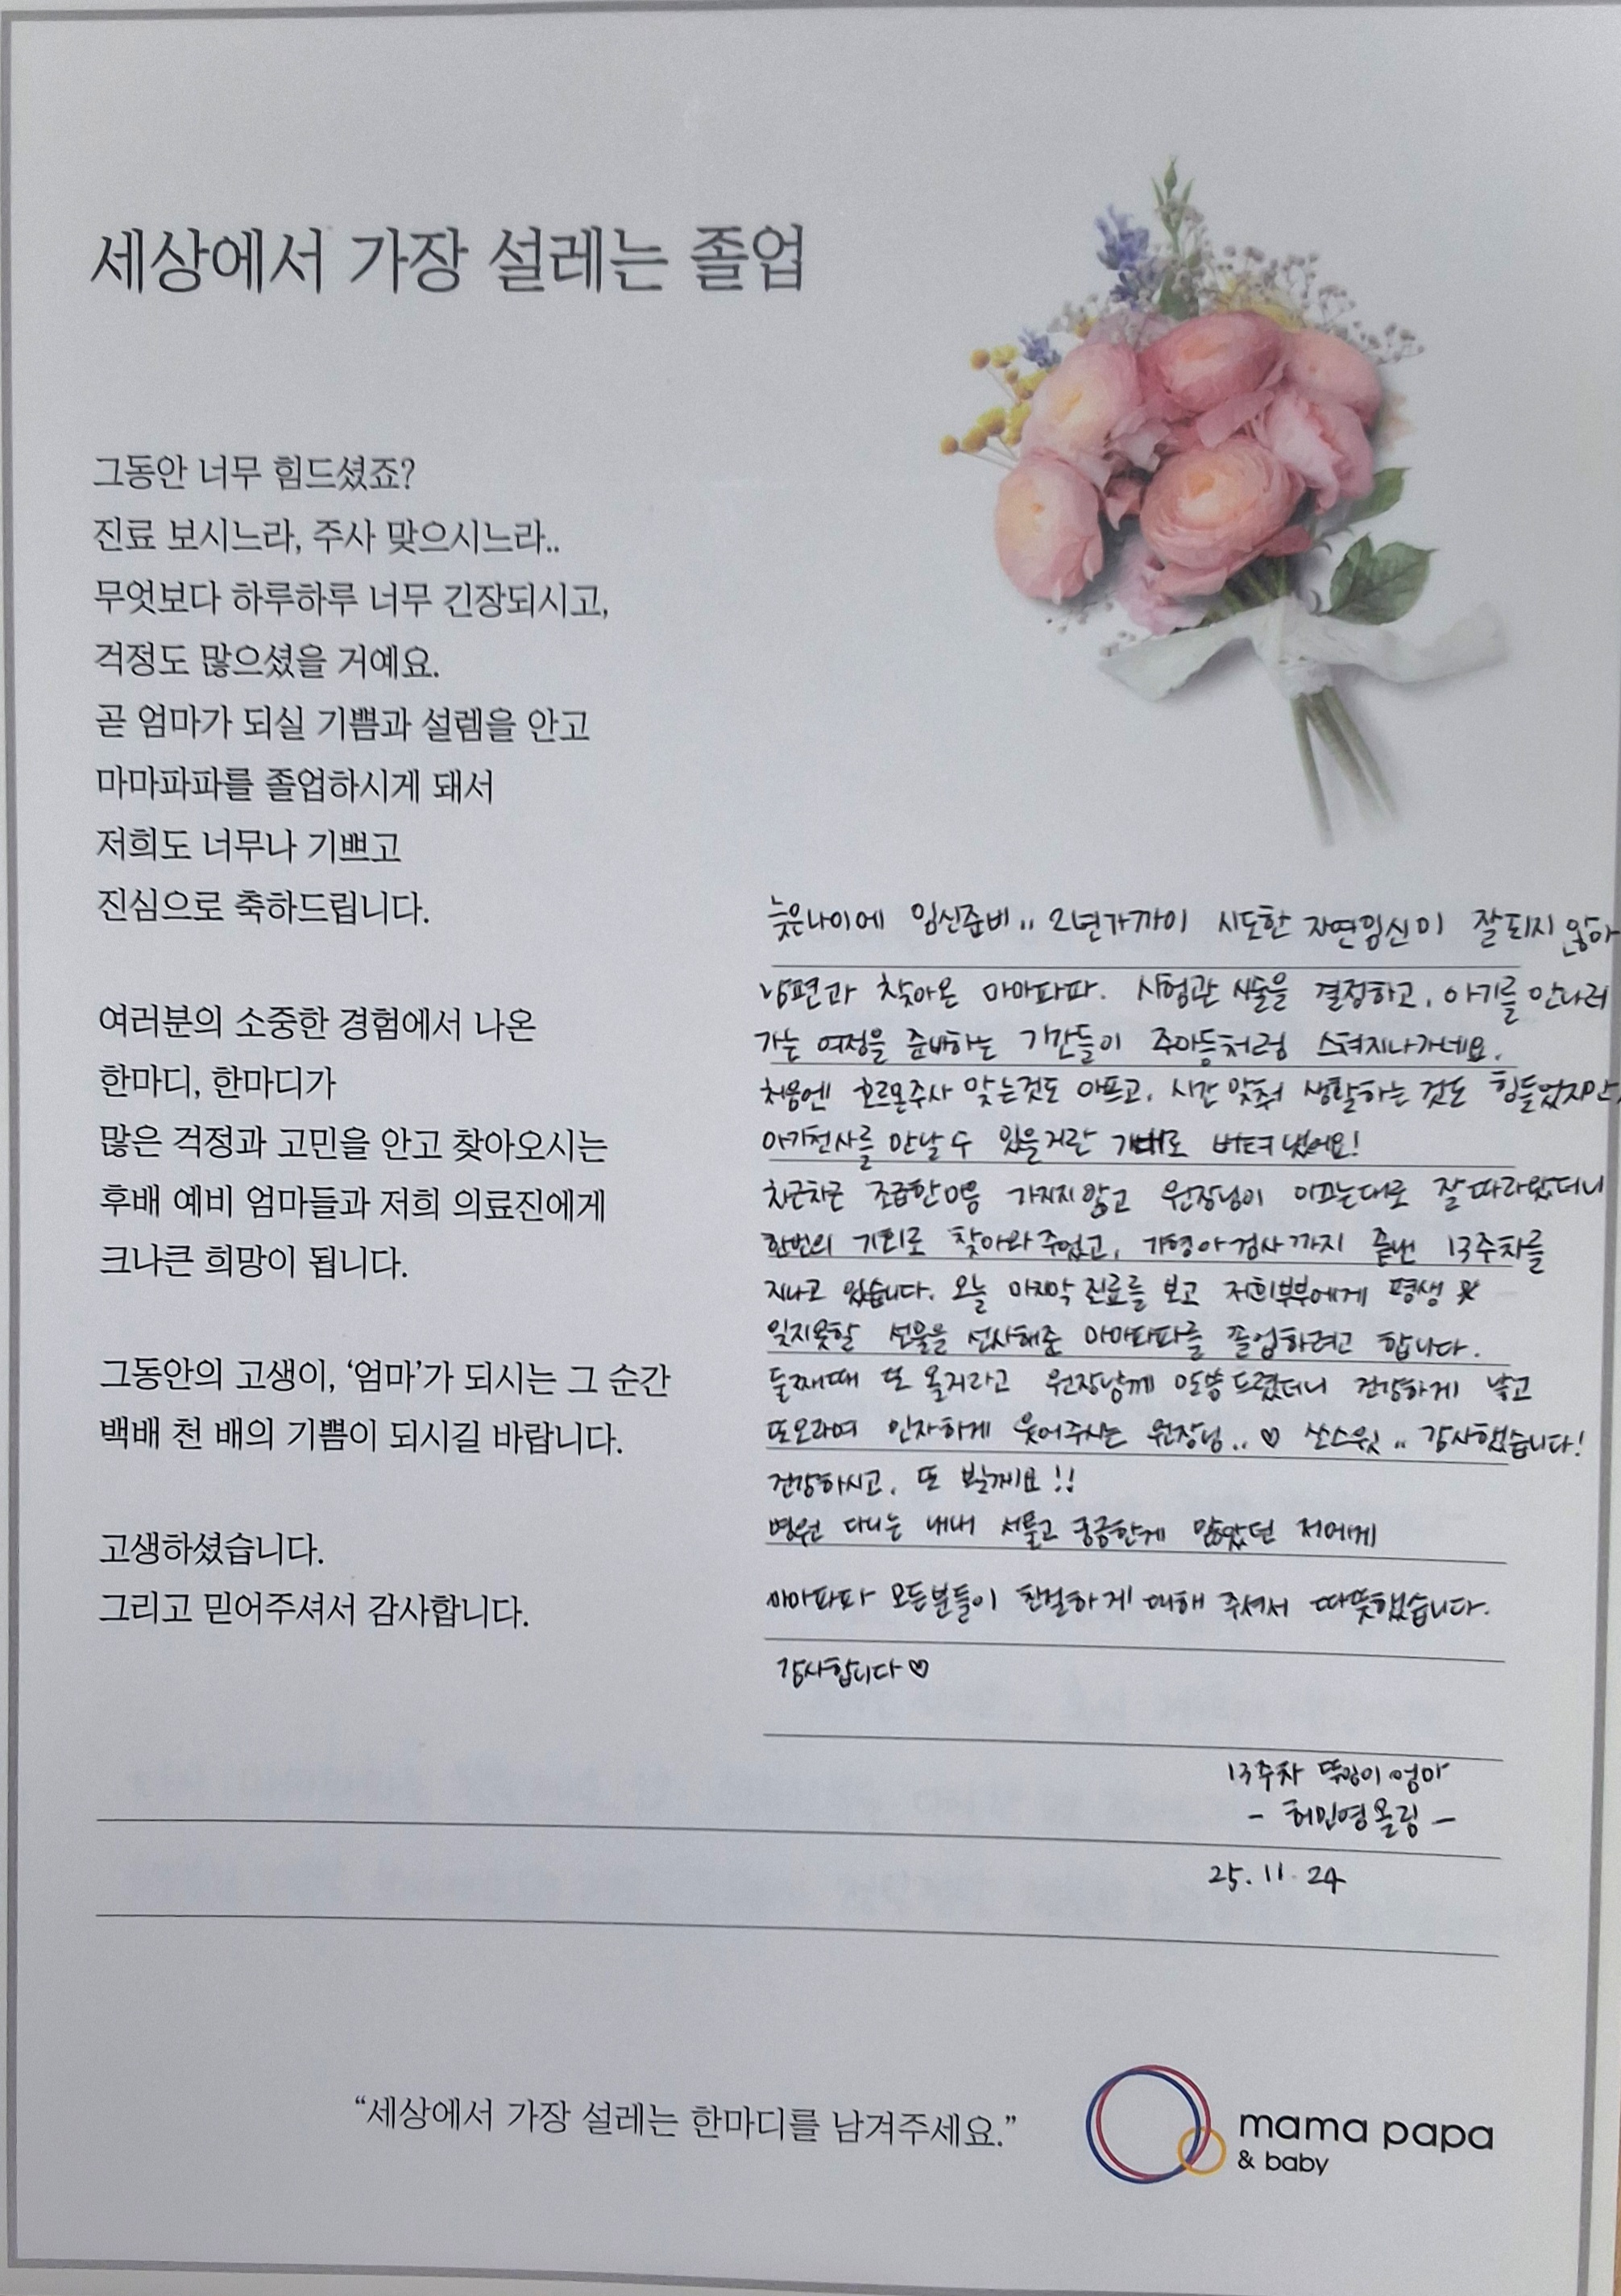 세상에서 가장 설레는 졸업
그동안 너무 힘드셨죠?
진료 보시느라, 주사 맞으시느라..
무엇보다 하루하루 너무 긴장되시고,
걱정도 많으셨을 거예요.
곧 엄마가 되실 기쁨과 설렘을 안고
마마파파를 졸업하시게 돼서
저희도 너무나 기쁘고
진심으로 축하드립니다.
여러분의 소중한 경험에서 나온
한마디, 한마디가
많은 걱정과 고민을 안고 찾아오시는
후배 예비 엄마들과 저희 의료진에게
크나큰 희망이 됩니다.
그동안의 고생이, ‘엄마’가 되시는 그 순간
백배 천 배의 기쁨이 되시길 바랍니다.
고생하셨습니다.
그리고 믿어주셔서 감사합니다.
늦은나이에 임신준비.. 2년가까이 시도한 자연임신이 잘되지 않아
남편과 찾아온 마마파파. 시험관 시술을 결정하고, 아기를 만나러
가는 여정을 준비하는 기간들이 주마등처럼 스쳐지나가네요.
처음엔 호르몬주사 맞는것도 아프고, 시간 맞춰 생활하는 것도 힘들었지만,
아기천사를 만날 수 있을거란 기대로 버텨냈어요!
차근차근 조급한맘 가지지않고 원장님이 이끄는대로 잘따라왔더니
한번의 기회로 찾아와주었고, 기형아검사까지 끝낸 13주차를
지나고 있습니다. 오늘 마지막 진료를 보고 저희부부에게 평생
잊지못할 선물을 선사해준 마마파파를 졸업하려고 합니다.
둘째때 또 올거라고 원장님께 말씀드렸더니 건강하게 낳고
또오라며 인자하게 웃어주시는 원장님..♡ 쏘스윗.. 감사했습니다!
건강하시고, 또 뵐게요!!
병원 다니는 내내 서툴고 궁금한게 많았던 저에게
마마파파 모든분들이 친절하게 대해 주셔서 따뜻했습니다.
감사합니다♡
13주차 엄마
- 허민영올림 -
25. 11. 24
“세상에서 가장 설레는 한마디를 남겨주세요.”
mama papa
& baby